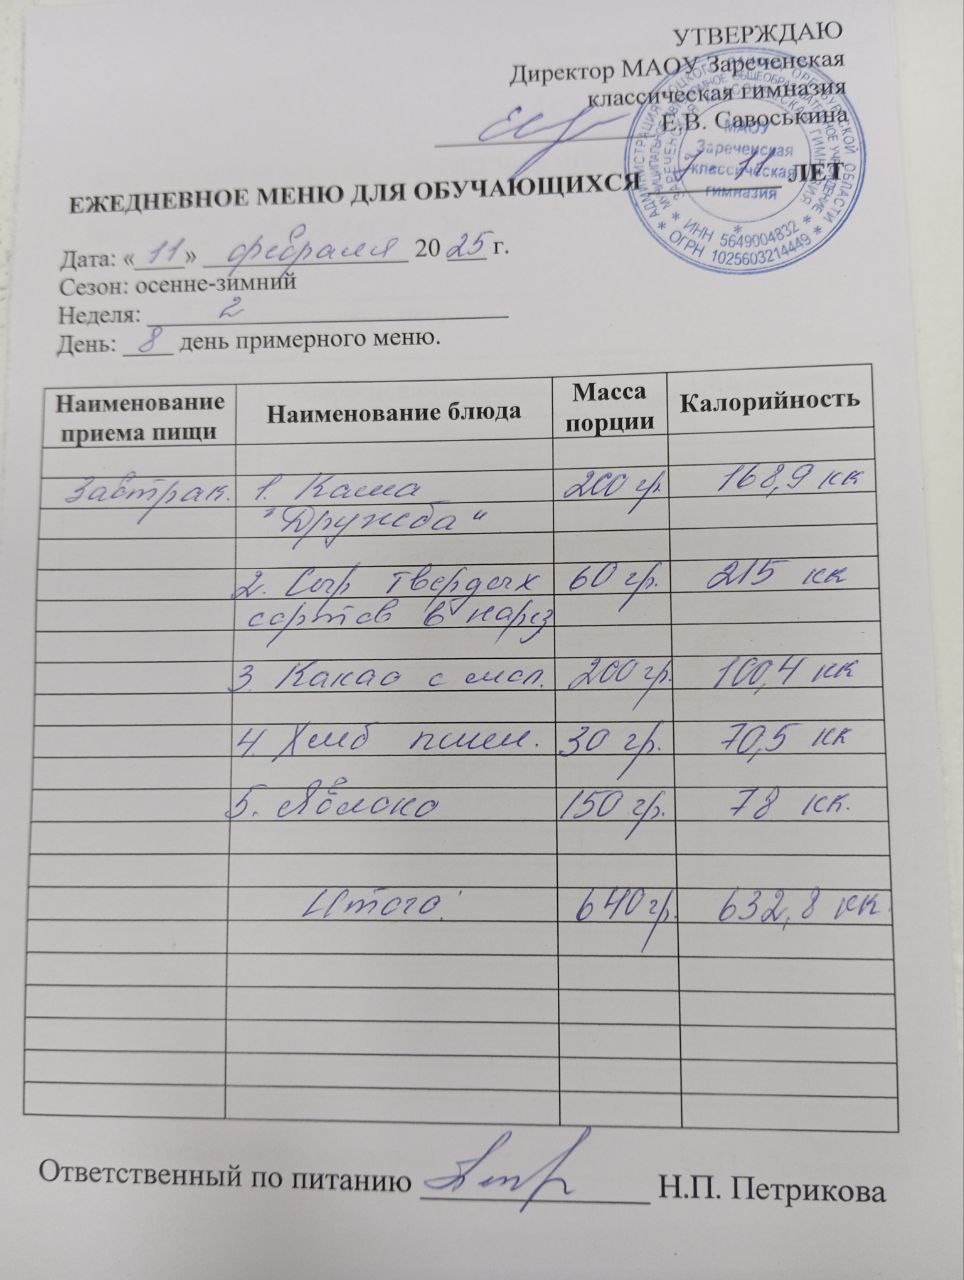 УТВЕРЖДАЮ
Директор МАОУ Зареченская
классическая гимназия
Е.В. Савоськина
ЕЖЕДНЕВНОЕ МЕНЮ ДЛЯ ОБУЧАЮЩИХСЯ 7-11 ЛЕТ
МАОУ
Зареченская
классическая
гимназия
* ИНН 5649004832 *
* ОГРН 1025603214449 *
Дата: «11» февраля 2025 г.
Сезон: осенне-зимний
Неделя: 2
День: 8 день примерного меню.
Наименование приема пищи Наименование блюда Масса порции Калорийность
Завтрак. 1. Каша 200 гр. 168,9 кк
"Дружба"
2. Сыр твердых 60 гр. 215 кк
сортов в нарез
3. Какао с мол. 200 гр. 100,4 кк
4. Хлеб пшен. 30 гр. 70,5 кк
5. Яблоко 150 гр. 78 кк.
Итого: 640 гр. 632,8 кк.
Ответственный по питанию Н.П. Петрикова